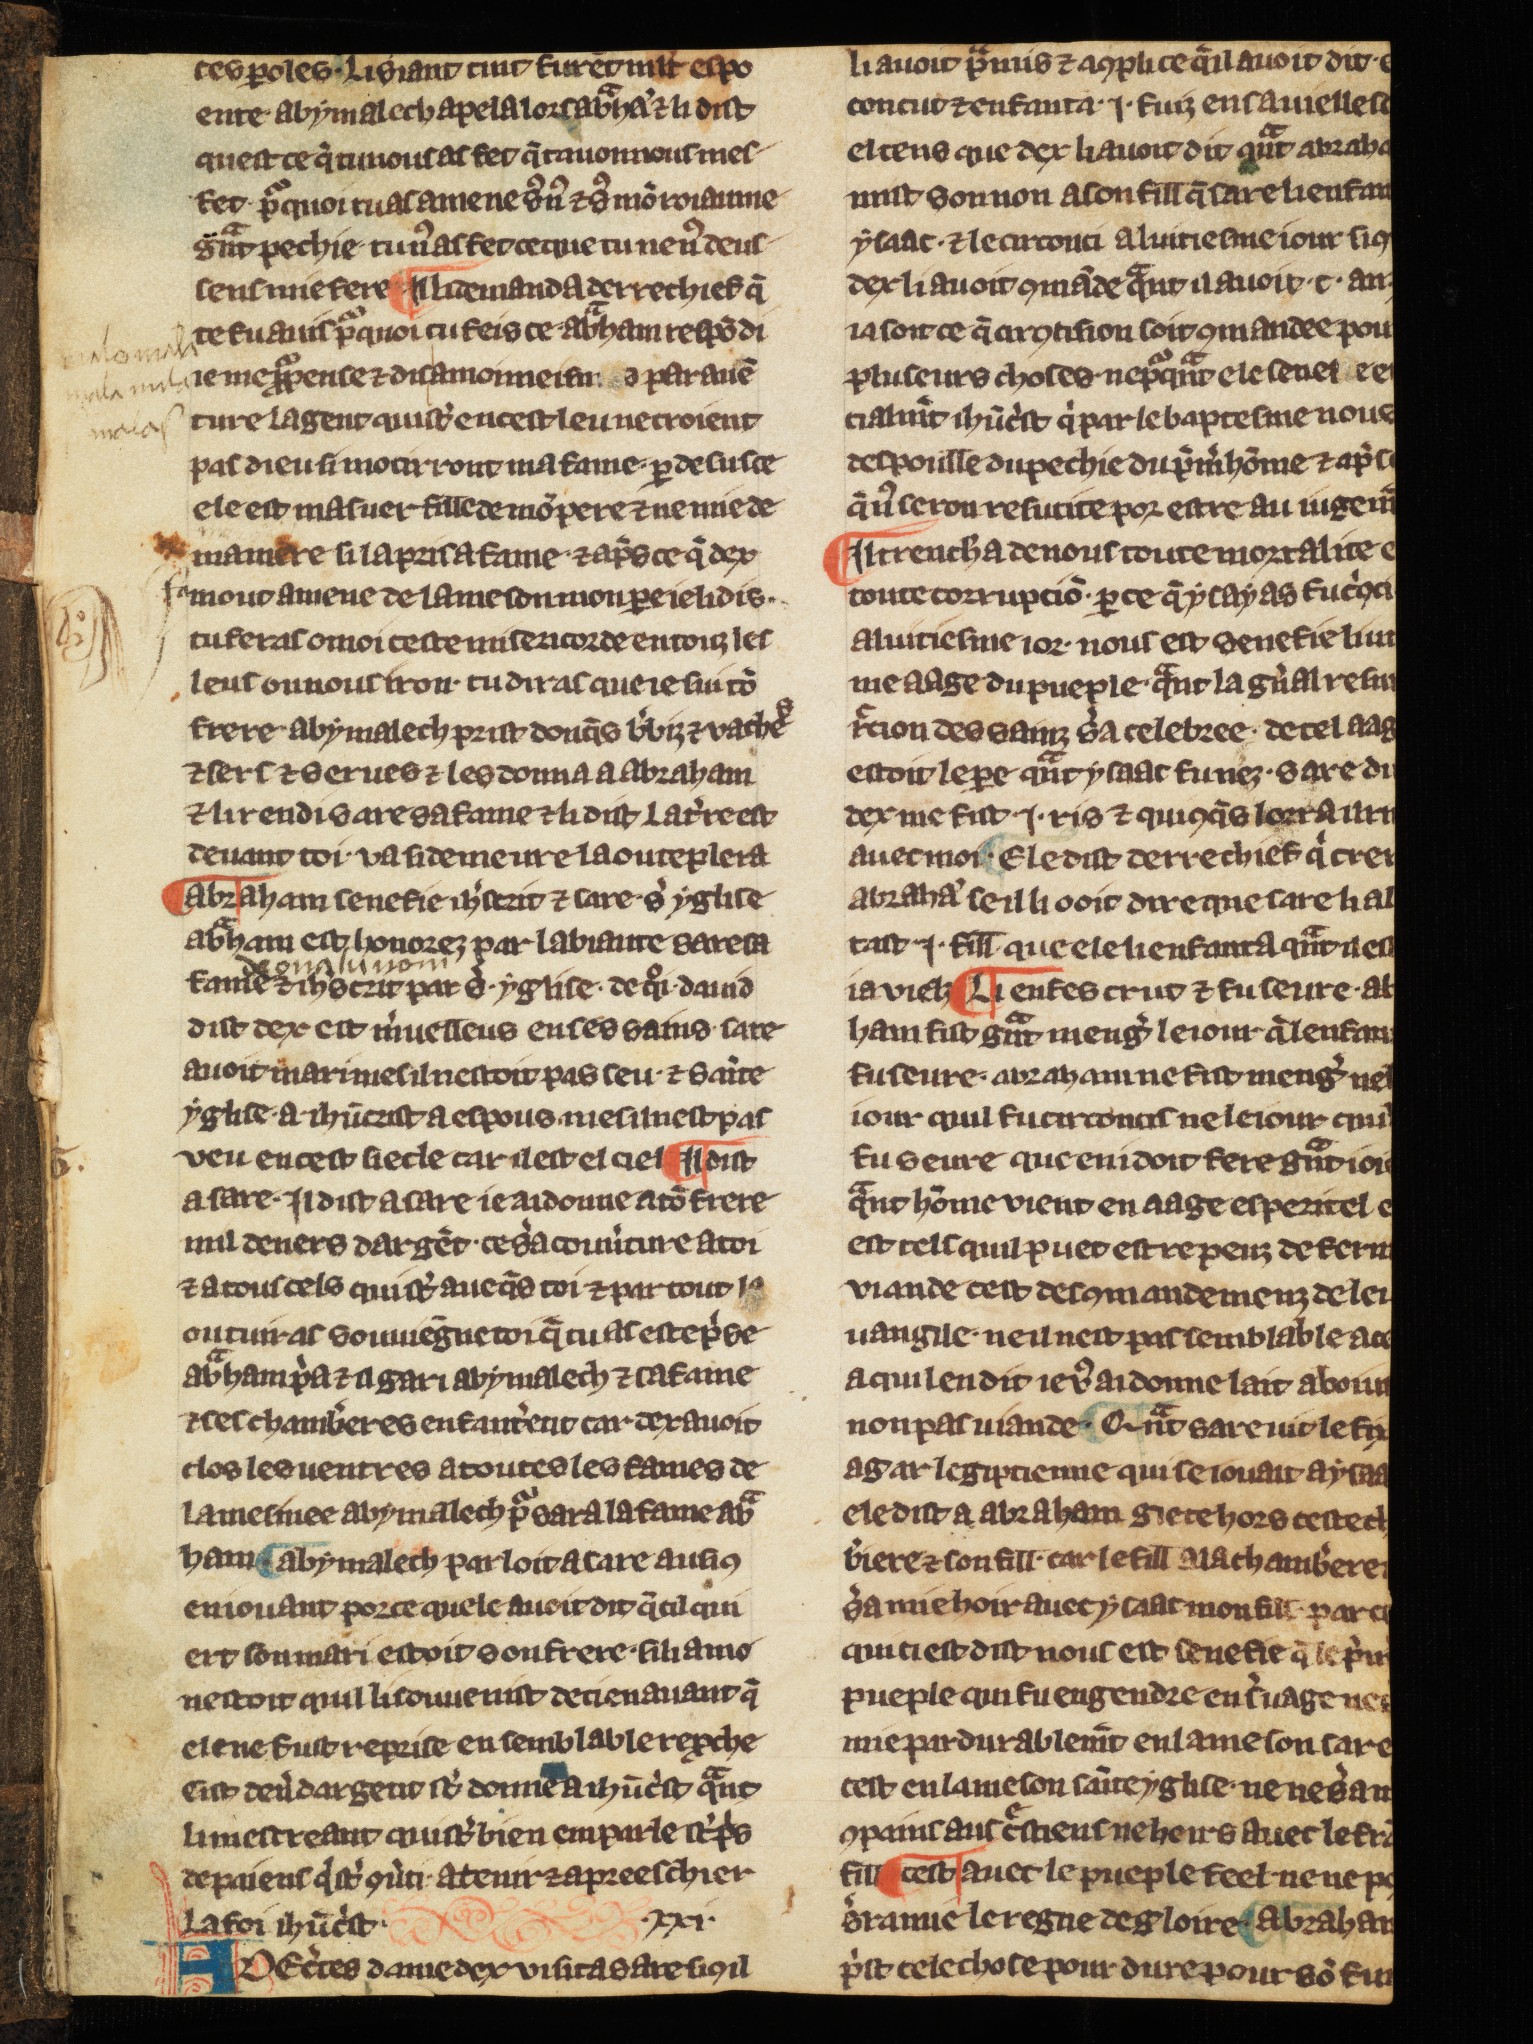 ces ꝑoles. Li siant tuit furēt mlt' espo
ente. abymalech apela lors abᵃhā ⁊ li dist
quest ce q̄ tu nous as fet q̄ tauonnous mes
fet. pᵃquoi tu as amene s' n' ⁊ s' mō roiaume
gᵃnt pechie. tu n' as fet ce que tu ne n' deus
sens mie fere. Il li demanda derrechief q̄
te fu auis pᵃquoi tu feis ce. abᵃham respōdi
ie me ꝓpense ⁊ dis a moi meism parauē
ture la gent qui s't en cest leu ne croient
pas dieu si mocirront ma fame. ꝑ desus ce
ele est ma suer fille de mō pere ⁊ ne mie de
ma mere si la pris a fame. ⁊ ap's ce q̄ dex
mout amene de la meson mon pere ie li dis.
tu feras o moi ceste misericorde en touz les
leus ou nous iron. tu diras que ie sui tō
frere. abymalech prist donq̄s b'biz ⁊ vaches
⁊ sers ⁊ serues ⁊ les donna a abraham
⁊ li rendi sare sa fame ⁊ li dist La t're est
deuant toi. va si demeure la ou te plera
abraham senefie ih'scrit ⁊ sare. s' yglise
abᵃham est honorez par la biaute sare sa
fame ⁊ ih'scrit par s' yglise. de q'i dauid
dist dex est m'uelleus en ses sains. sare
auoit mari mes il nestoit pas seu. ⁊ sāīte
yglise. a ihūcrist a espous. mes il nest pas
veu en cest siecle car il est el ciel Il dist
a sare. Il dist a sare ie ai donne a tō frere
mil deners dargēt. ce s'a couu'ture a toi
⁊ a tous cels qui s't aueq̄s toi ⁊ par tout la
ou tu iras souuiegne toi q̄ tu as este p'se
abᵃham p'a ⁊ il gari abymalech ⁊ sa fame
⁊ ses chamb'eres enfant'ent car dex auoit
clos les uentres a toutes les fames de
la mesniee abymalech pᵃ sara la fame abᵃ
ham abymalech parloit a sare ausiꝯ
en iouant por ce quele auoit dit q̄ cil qui
ert son mari estoit son frere. si li amo
nestoit quil li souuenist de ci en auant q̄
ele ne fust reprise en semblable repche
Cist den' dargent s't donne a ihūc'st qᵃnt
li mestreant qui s't bien emparle s't p's
de paiens q' s't ꝯu'ti. a tenir ⁊ a preeschier
la foi ihūc'st. .xxi.
A Dec'tes damedex visita sare si ꝯ il
li auoit pᵃmis ⁊ aꝯpli ce q̄ il auoit dit. e
concut ⁊ enfanta .j. fuiz en sa viellesc
el tens que dex li auoit dit qᵃnt abraha
mist son non a son fill q̄ sare li enfan
ysaac. ⁊ le circonci a luitiesme iour si ꝯ
dex li auoit ꝯmāde qᵃnt il auoit .c. an
ia soit ce q̄ circōcision soit ꝯmandee pou
pluseurs choses. nepᵃqᵃnt ele senef ie e
cialm̄t ihūc'st q' par le baptesme nous
despoulle du pechie du p'm' hōme ⁊ ap's
q̄ n' seron resucite por estre au iugem̄
Il trencha de nous toute mortalite e
toute corruptiō. ꝑ ce q̄ ysayas fu c'ꝯci
a luitiesme ior. nous est senefie li vn
me aage du pueple. qᵃnt la gn'al resur
rᵉcion des sainz s'a celebree. de tel aag
estoit le pere qᵃnt ysaac fu nez. sare di
dex me fist .j. ris ⁊ quiꝯq̄s lorra si rir
auec moi. Ele dist derrechief q' crer
abrahā' se il li ooit dire que sare li al
tast .j. fill que ele li enfanta qᵃnt il es
ia vielz Li enfes crut ⁊ fu seure. ab
ham fist gᵃnt meng' le iour q̄ lenfan
fu seure. abraham ne fist meng' ne l
iour quil fu circoncis ne le iour quil
fu seure que en i doit fere gᵃnt ioie
qᵃnt hōme vient en aage esperitel e
est tels quil puet estre peuz de ferm
viande cest des ꝯmandemenz de leu
uangile. ne il nest pas semblable a ce
a qui len dit ie v' ai donne lait a boiure
non pas viande. Qᵃnt sare vit le fix
agar legiptienne qui se iouait a ysaa
ele dist a abraham giete hors ceste ch
b'iere ⁊ son fill. car le fill a la chamb'ere
s'a mie hoir auec ysaac mon fill. par ce
qui ci est dist nous est senefie q̄ le p'm
pueple qui fu engendre en s'uage ne
mie pardurablem̄t en la meson sare
cest en la meson sāīte yglise. ne ne s'a m
ꝯpains aus c'stiens ne heirs auec le frā
fill cest auec le pueple feel. ne ne po
s'ra mie le regne de gloire. Abraham
p'st cele chose pour dure pour sō fuiz